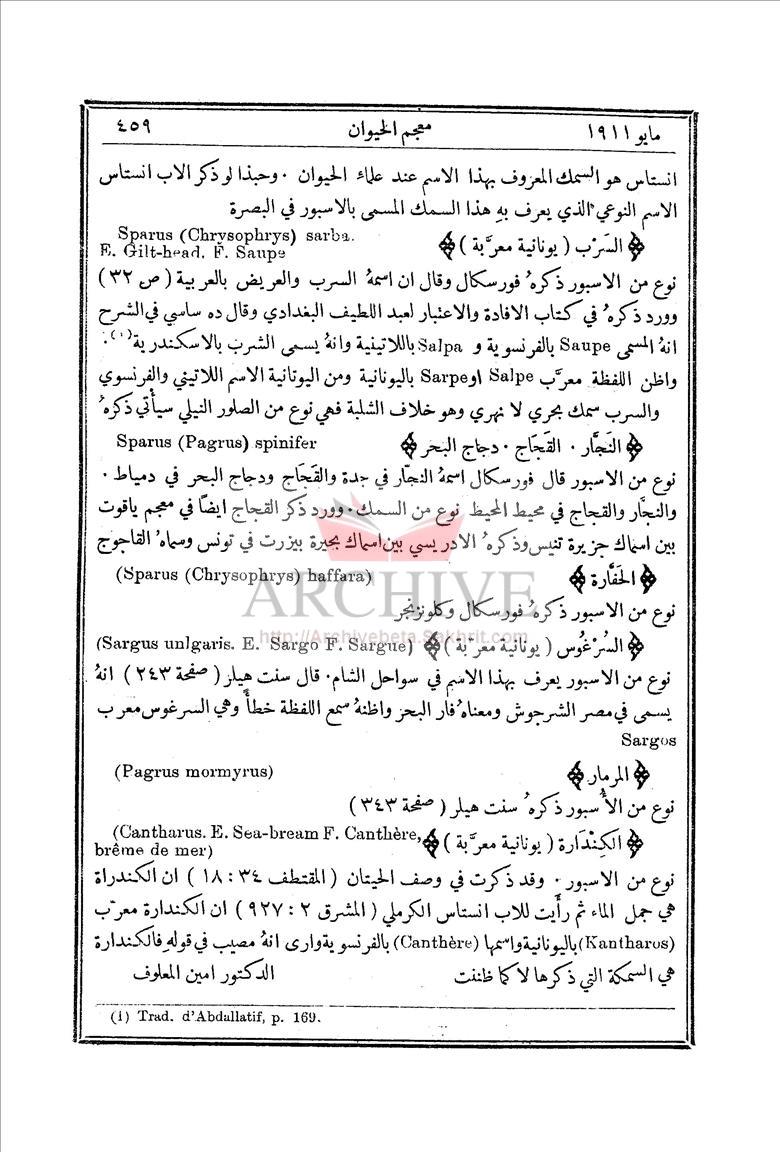 مايو ١٩١١ معجم الحيوان ٤٥٩
انستاس هو السمك المعروف بهذا الاسم عند علماء الحيوان . وحبذا لو ذكر الاب انستاس
الاسم النوعي الذي يعرف به هذا السمك المسمى بالاسبور في البصرة
﴿ السَرْب ( يونانية معرَّبة ) ﴾ Sparus (Chrysophrys) sarba.
E. Gilt-head. F. Saupe
نوع من الاسبور ذكرهُ فورسكال وقال ان اسمهُ السرب والعريض بالعربية ( ص ٣٢ )
وورد ذكرهُ في كتاب الافادة والاعتبار لعبد اللطيف البغدادي وقال ده ساسي في الشرح
انهُ المسمى Saupe بالفرنسوية و Salpa باللاتينية وانهُ يسمى الشرب بالاسكندرية(١).
واظن اللفظة معرَّب Salpe او Sarpe باليونانية ومن اليونانية الاسم اللاتيني والفرنسوي
والسرب سمك بحري لا نهري وهو خلاف الشلبة فهي نوع من الصلور النيلي سيأتي ذكرهُ
﴿ النَجَّار . القَجَاج . دجاج البحر ﴾ Sparus (Pagrus) spinifer
نوع من الاسبور قال فورسكال اسمهُ النجّار في جدة والقَجَاج ودجاج البحر في دمياط .
والنجَّار والقجاج في محيط المحيط نوع من السمك . وورد ذكر القجاج ايضًا في معجم ياقوت
بين اسماك جزيرة تنيس وذكرهُ الادريسي بين اسماك بحيرة بيزرت في تونس وسماهُ القاجوج
﴿ الحَفَّارة ﴾ (Sparus (Chrysophrys) haffara)
نوع من الاسبور ذكرهُ فورسكال وكلونزنجر
﴿ السُرْغُوس ( يونانية معرَّبة ) ﴾ (Sargus unlgaris. E. Sargo F. Sargue)
نوع من الاسبور يعرف بهذا الاسم في سواحل الشام . قال سنت هيلر ( صفحة ٢٤٣ ) انهُ
يسمى في مصر الشرجوش ومعناهُ فار البحر واظنهُ سمع اللفظة خطأً وهي السرغوس معرب
Sargos
﴿ المرمار ﴾ (Pagrus mormyrus)
نوع من الأُسبور ذكرهُ سنت هيلر ( صفحة ٣٤٣ )
﴿ الكِنْدَارة ( يونانية معرَّبة ) ﴾ (Cantharus. E. Sea-bream F. Canthère,
brême de mer)
نوع من الاسبور . وقد ذكرت في وصف الحيتان ( المقتطف ٣٤ : ١٨ ) ان الكندراة
هي جمل الماء ثم رأيت للاب انستاس الكرملي ( المشرق ٢ : ٩٢٧ ) ان الكندارة معرَّب
(Kantharos) باليونانية واسمها (Canthère) بالفرنسوية وارى انهُ مصيب في قولهِ فالكندارة
هي السمكة التي ذكرها لا كما ظننت الدكتور امين المعلوف
(1) Trad. d'Abdallatif, p. 169.
ARCHIVE
http://Archivebeta.Sakhrit.com